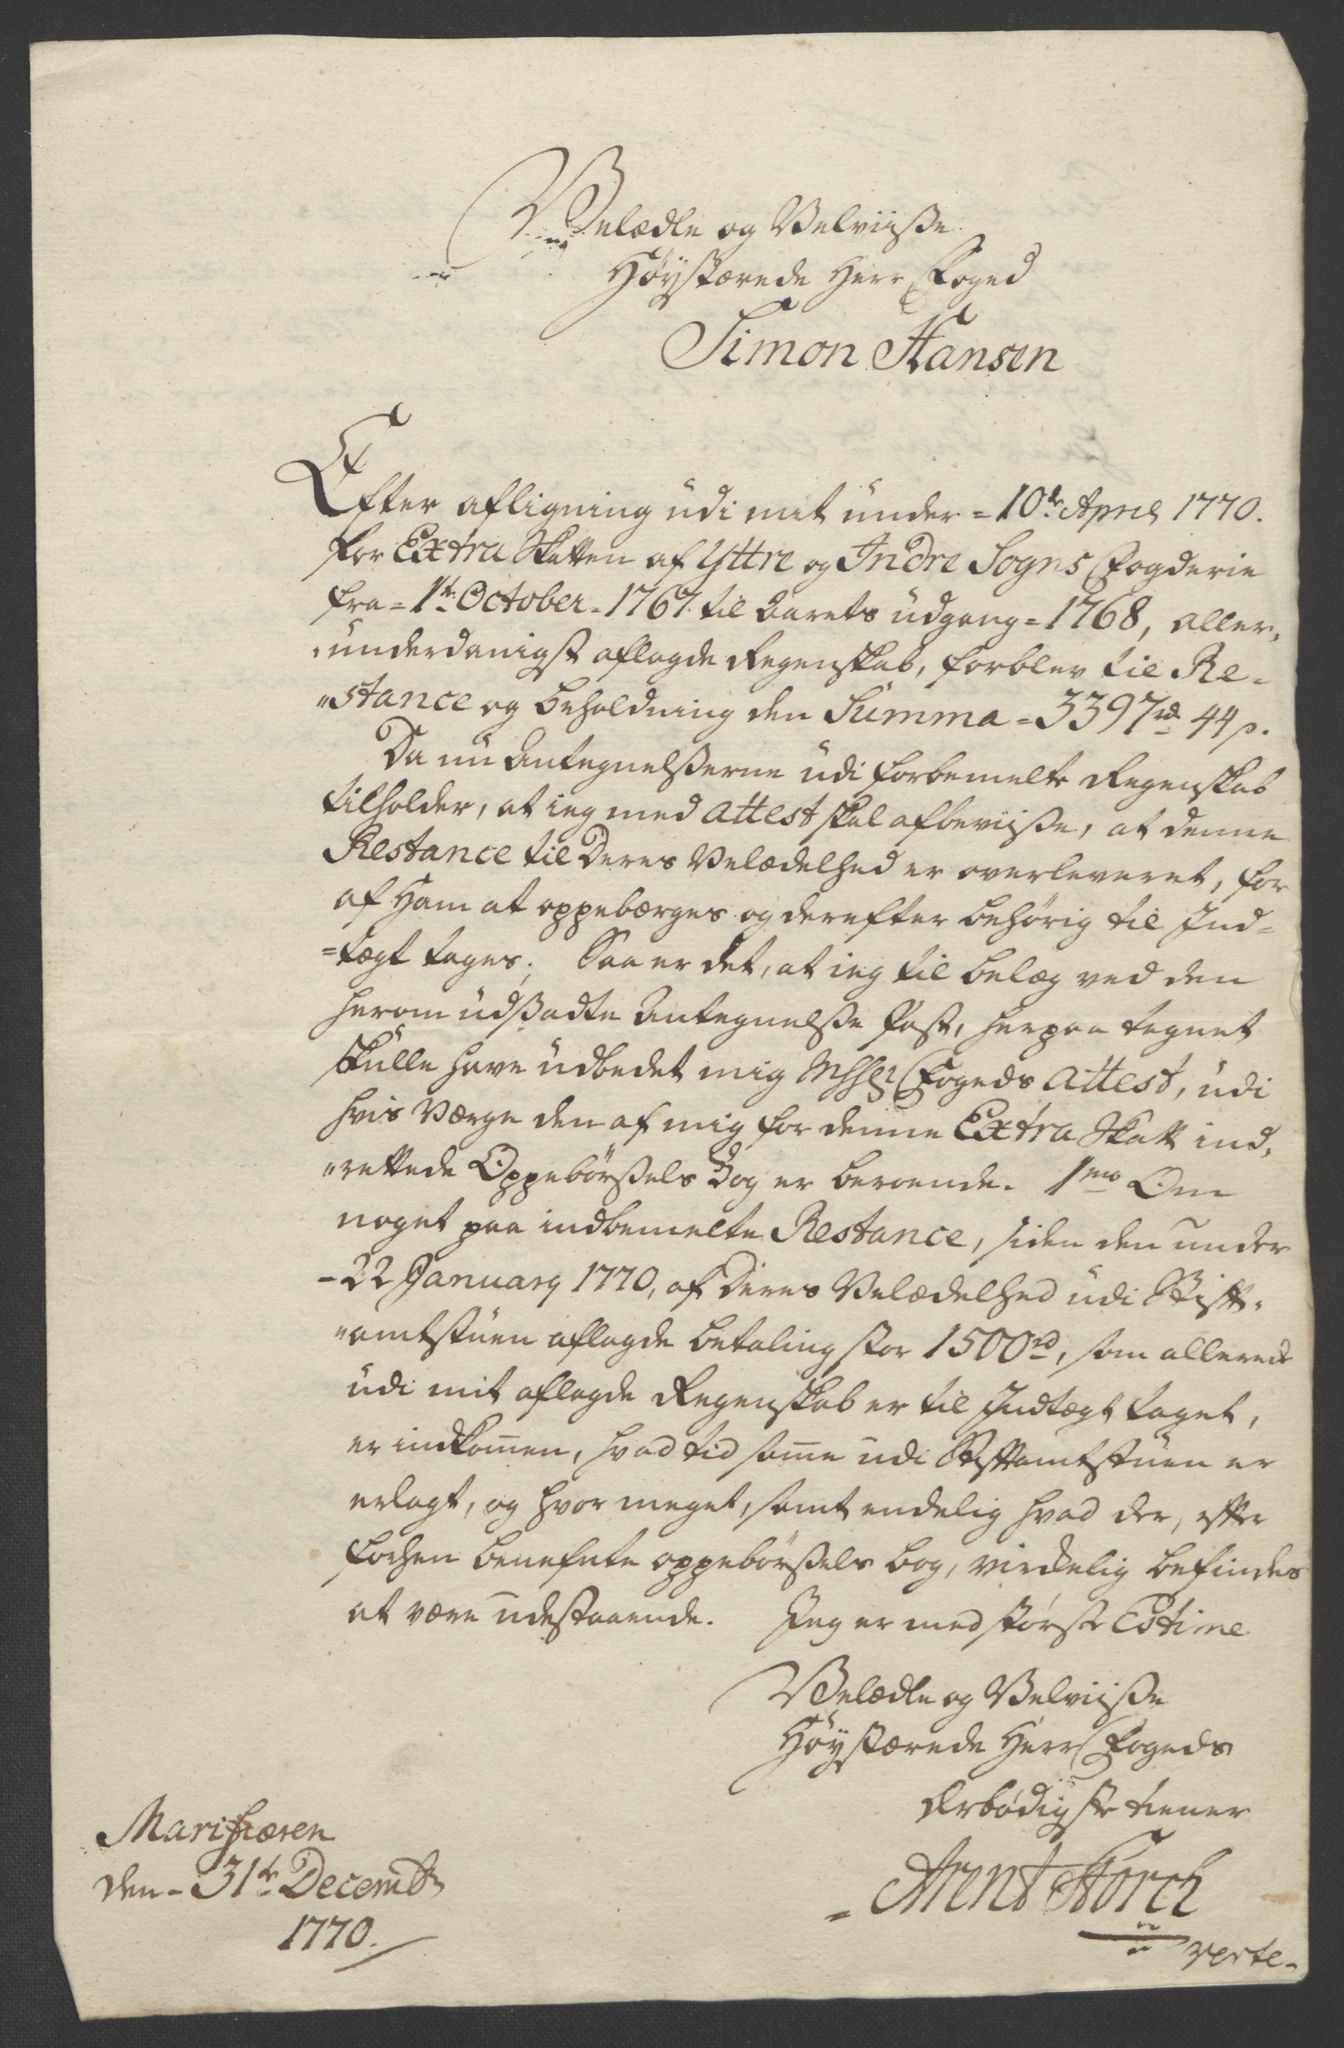 Velædle og Velviiße
Høystærede Herr Foged
Simon Hansen
Efter afligning udi mit under = 10de April 1770.
for Extra Skatten af Yttre og Indre Sogns Fogderie
fra = 1te October = 1767 til Aarets udgang = 1768, aller,
underdanigst aflagde Regenskab, forblev til Re-
"stance og beholdning den Summa = 3397rd 44s.
Da nu Antegnelßerne udi forbemelte Regenskab
tilholder, at ieg med Attest skal afbeviiße, at denne
Restance til Deres Velædelhed er overleveret, for
af Ham at oppebærges og derefter behørig til Ind-
=tægt tages; Saa er det, at ieg til belæg ved den
herom udßadte Antegnelße Post, herpaa tegnet
skulle have udbedet mig Hr Fogeds Attest, udi
hvis Værge den af mig for denne Extra Skatt ind,
"rettede Oppebørßels Bog er beroende. 1mo Om
noget paa indbemelte Restance, siden den under
- 22 January 1770, af Deres Velædelhed udi Stift-
"amtstuen aflagde betaling stor 1500rd, som allerede
udi mit aflagde Regenskab er til Indtægt taget,
er indkommen, hvad tid samme udi Stiftamtstuen er
erlagt, og hvor meget, samt endelig hvad der, efter
forhen benefnte oppebørßels bog, virkelig befindes
at være udestaaende. Jeg er med størst Estime
Velædle og Velviiße
Høystærede Herr Fogeds
ærbødigste tiener
Arent Storch
Marifiæren
den - 31te Decembr
1770.
verte.